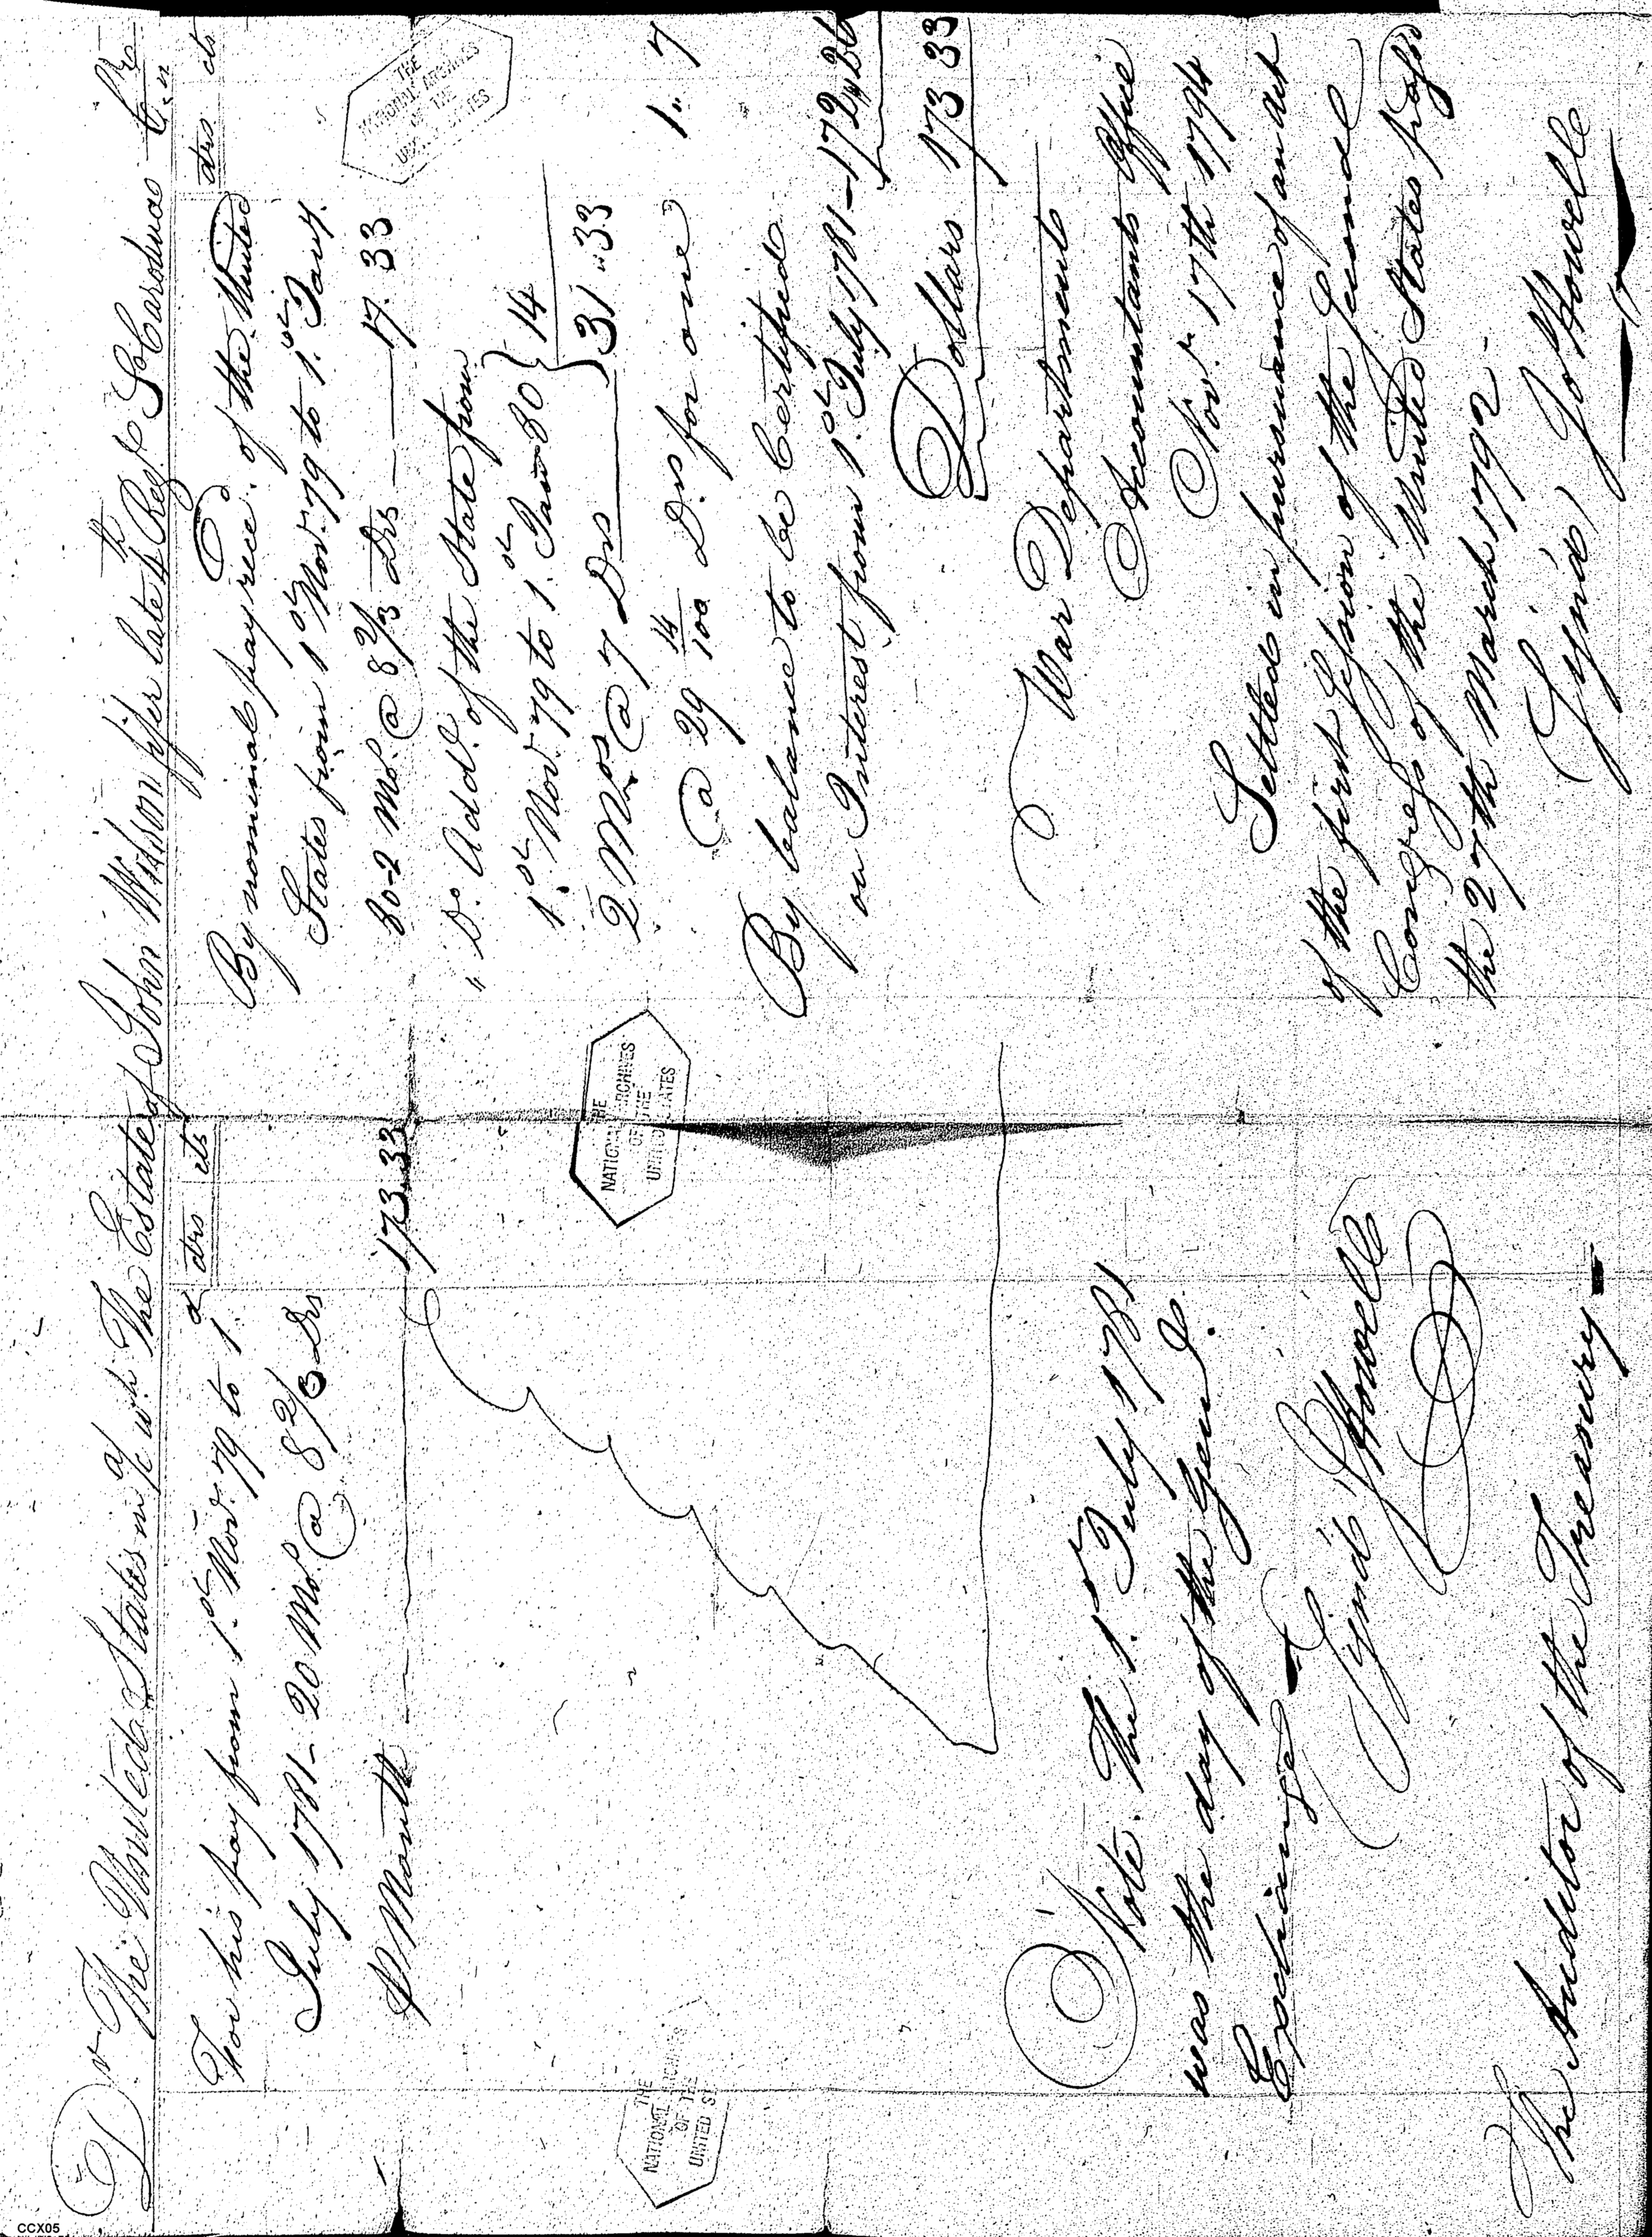 Dr The United States in a/c wth The Estate of John Wilson fifer late 4th Regt So Carolinas Cr
drs cts
For his pay from 1st Novr 79 to 1st
July 1781 - 20 Mos @ 8 2/3 Drs
P Month 173.33
Note. The 1st July 1781
was the day of the Genl
Exchange
Signd J Howell
The Auditor of the Treasury
drs cts
By nominal pay recd. of the United
States from 1st Novr. 79 to 1st Jany.
80-2 Mo. @ 8 2/3 Drs 17.33
" Do. Addl. of the State from
1st Novr. 79 to 1st Jan 80 } 14
2 Mos @ 7 Drs } 31 " 33
@ 29 14/100 Drs for one 1 " 7
By balance to be Certified
on Interest from 1st July 1781 - 172 " 26
Dollars 173 33
War Department
Accountants Office
Novr 17th 1794
Settled in pursuance of an Act
of the first Session of the Second
Congress of the United States passd
the 27th March 1792 -
Signd, Jo Howell
THE
NATIONAL ARCHIVES
OF THE
UNITED STATES
THE
NATIONAL ARCHIVES
OF THE
UNITED STATES
THE
NATIONAL ARCHIVES
OF THE
UNITED ST
CCX05